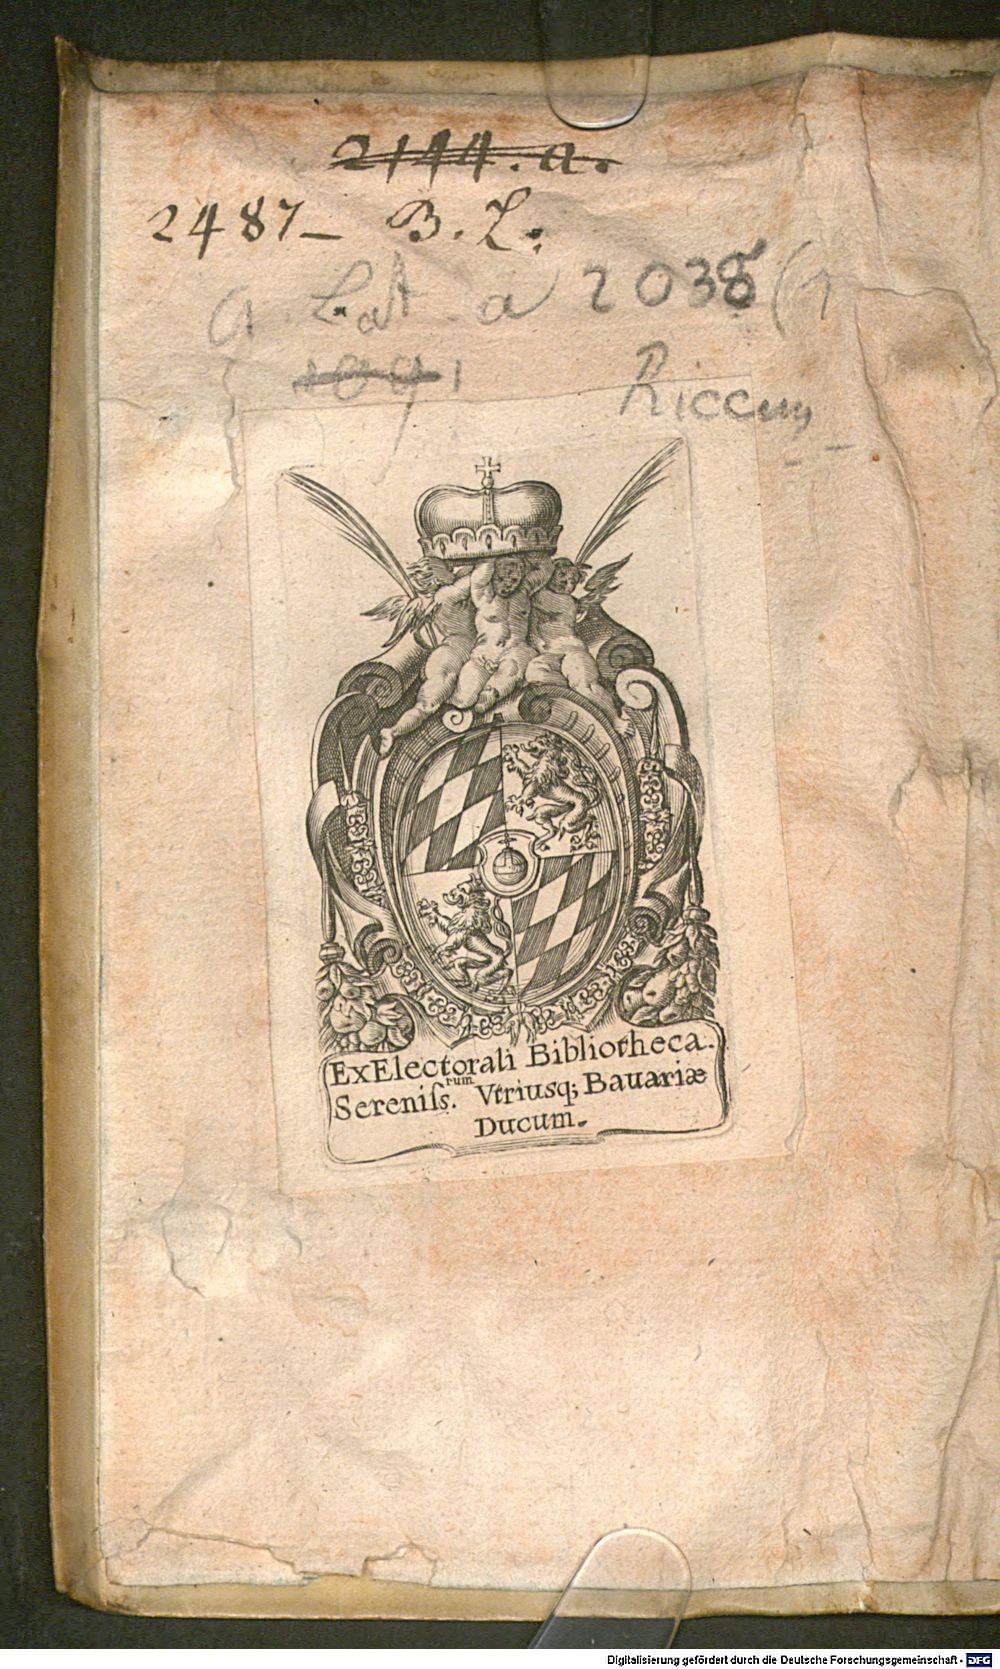 2144. a.
2487 – B. L:
A. Lat. a 2038 (1
1091
Riccius
Ex Electorali Bibliotheca
Sereniſs.rum Vtriusq; Bauariæ
Ducum.
Digitalisierung gefördert durch die Deutsche Forschungsgemeinschaft - DFG